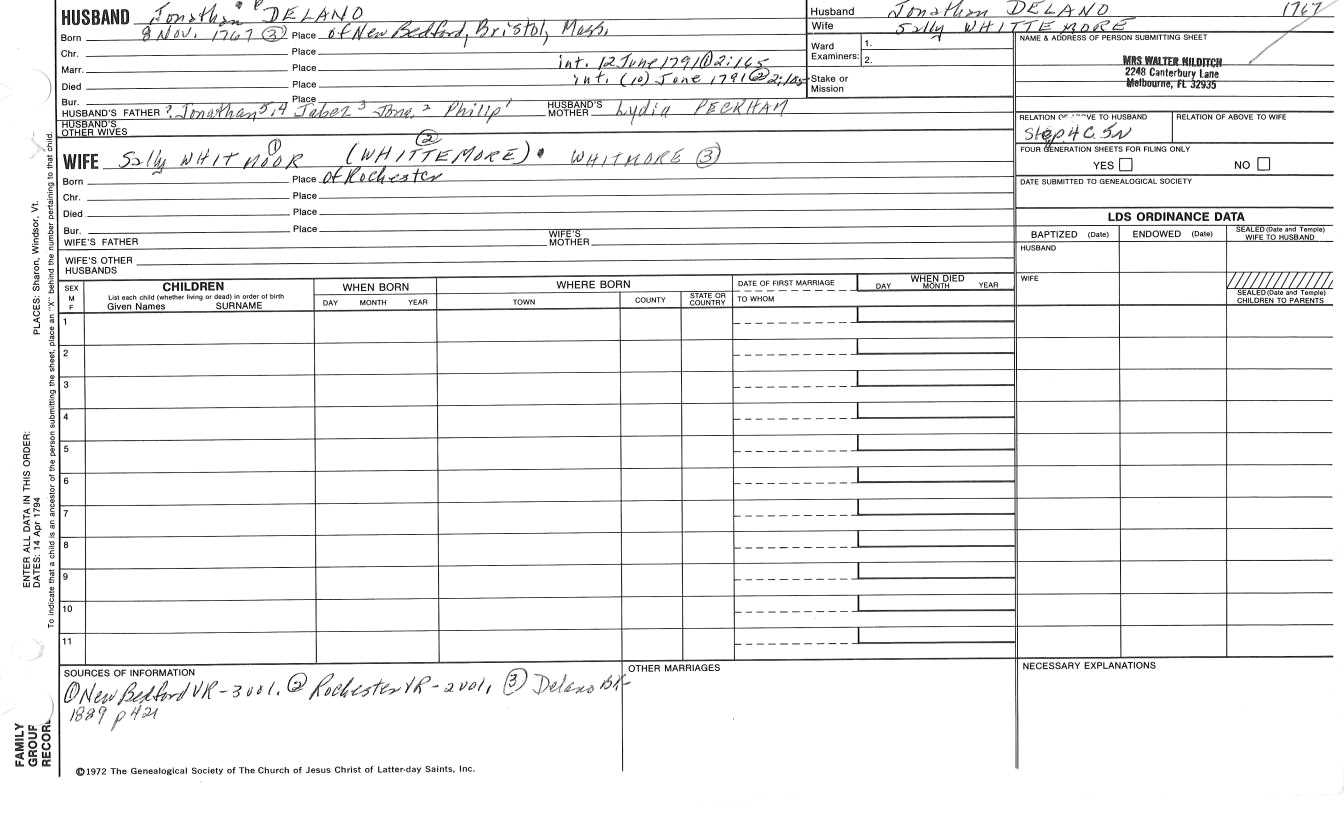 HUSBAND Jonathan DELANO
Born 8 Nov. 1767 ③ Place of New Bedford, Bristol, Mass.
Chr. Place
Marr. Place int. 12 June 1791 ① 2:165
Died Place int. (10) June 1791 ② 2:105
Bur. Place
HUSBAND'S FATHER ? Jonathan 5,4 Jabez 3 Jona. 2 Philip 1 HUSBAND'S MOTHER Lydia PECKHAM
HUSBAND'S OTHER WIVES
WIFE Sally WHITMOOR ① (WHITTEMORE) ② WHITMORE ③
Born Place of Rochester
Chr. Place
Died Place
Bur. Place
WIFE'S FATHER WIFE'S MOTHER
WIFE'S OTHER HUSBANDS
Husband Jonathan DELANO 1767
Wife Sally WHITTEMORE
Ward Examiners: 1.
2.
Stake or Mission
NAME & ADDRESS OF PERSON SUBMITTING SHEET
MRS WALTER HILDITCH
2248 Canterbury Lane
Melbourne, FL 32935
RELATION OF ABOVE TO HUSBAND RELATION OF ABOVE TO WIFE
Step 4C. 5N
FOUR GENERATION SHEETS FOR FILING ONLY
YES NO
DATE SUBMITTED TO GENEALOGICAL SOCIETY
LDS ORDINANCE DATA
BAPTIZED (Date) ENDOWED (Date) SEALED (Date and Temple) WIFE TO HUSBAND
HUSBAND
WIFE
SEALED (Date and Temple) CHILDREN TO PARENTS
SEX M F
CHILDREN
List each child (whether living or dead) in order of birth
Given Names SURNAME
WHEN BORN
DAY MONTH YEAR
WHERE BORN
TOWN COUNTY STATE OR COUNTRY
DATE OF FIRST MARRIAGE
TO WHOM
WHEN DIED
DAY MONTH YEAR
1
2
3
4
5
6
7
8
9
10
11
SOURCES OF INFORMATION
① New Bedford VR-3001, ② Rochester VR-2001, ③ Delano BK-
1899 p 421
OTHER MARRIAGES
NECESSARY EXPLANATIONS
©1972 The Genealogical Society of The Church of Jesus Christ of Latter-day Saints, Inc.
FAMILY GROUP RECORD
ENTER ALL DATA IN THIS ORDER:
DATES: 14 Apr 1794
PLACES: Sharon, Windsor, Vt.
To indicate that a child is an ancestor of the person submitting the sheet, place an "X" behind the number pertaining to that child.